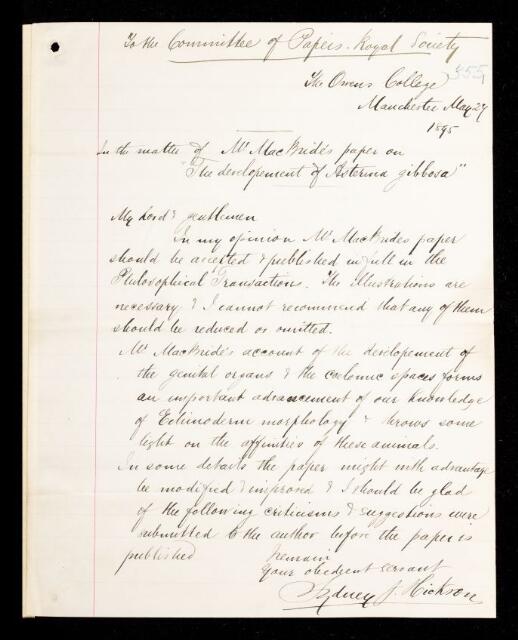 To the Committee of Papers. Royal Society
455
The Owens College
Manchester May 27
1895
In the matter of Mr MacBride's paper on
"The developement of Asterina gibbosa"
My Lord & gentlemen
In my opinion Mr MacBride's paper
should be accepted & published in full in the
Philosophical Transactions. The illustrations are
necessary & I cannot recommend that any of them
should be reduced or omitted.
Mr MacBride's account of the developement of
the genital organs & the coelomic spaces forms
an important advancement of our knowledge
of Echinoderm morphology & throws some
light on the affinities of these animals.
In some details the paper might with advantage
be modified & improved & I should be glad
if the following criticisms & suggestions were
submitted to the author before the paper is
published
I remain
Your obedient servant
Sydney J. Hickson